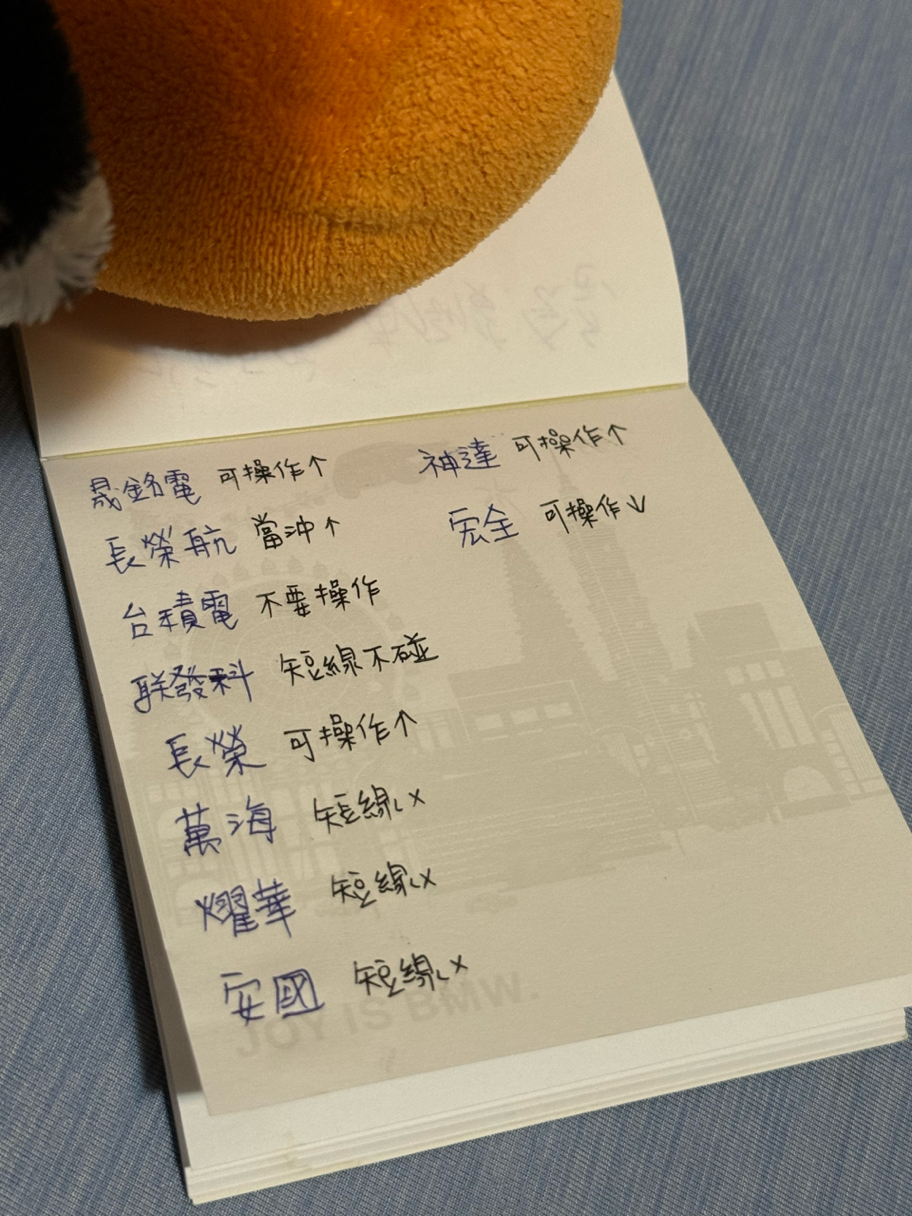 晟銘電 可操作↑
長榮航 當沖↑
台積電 不要操作
联發科 短線不碰
長榮 可操作↑
萬海 短線 ×
燿華 短線 ×
安國 短線 ×
神達 可操作↑
宏全 可操作↓
JOY IS BMW.